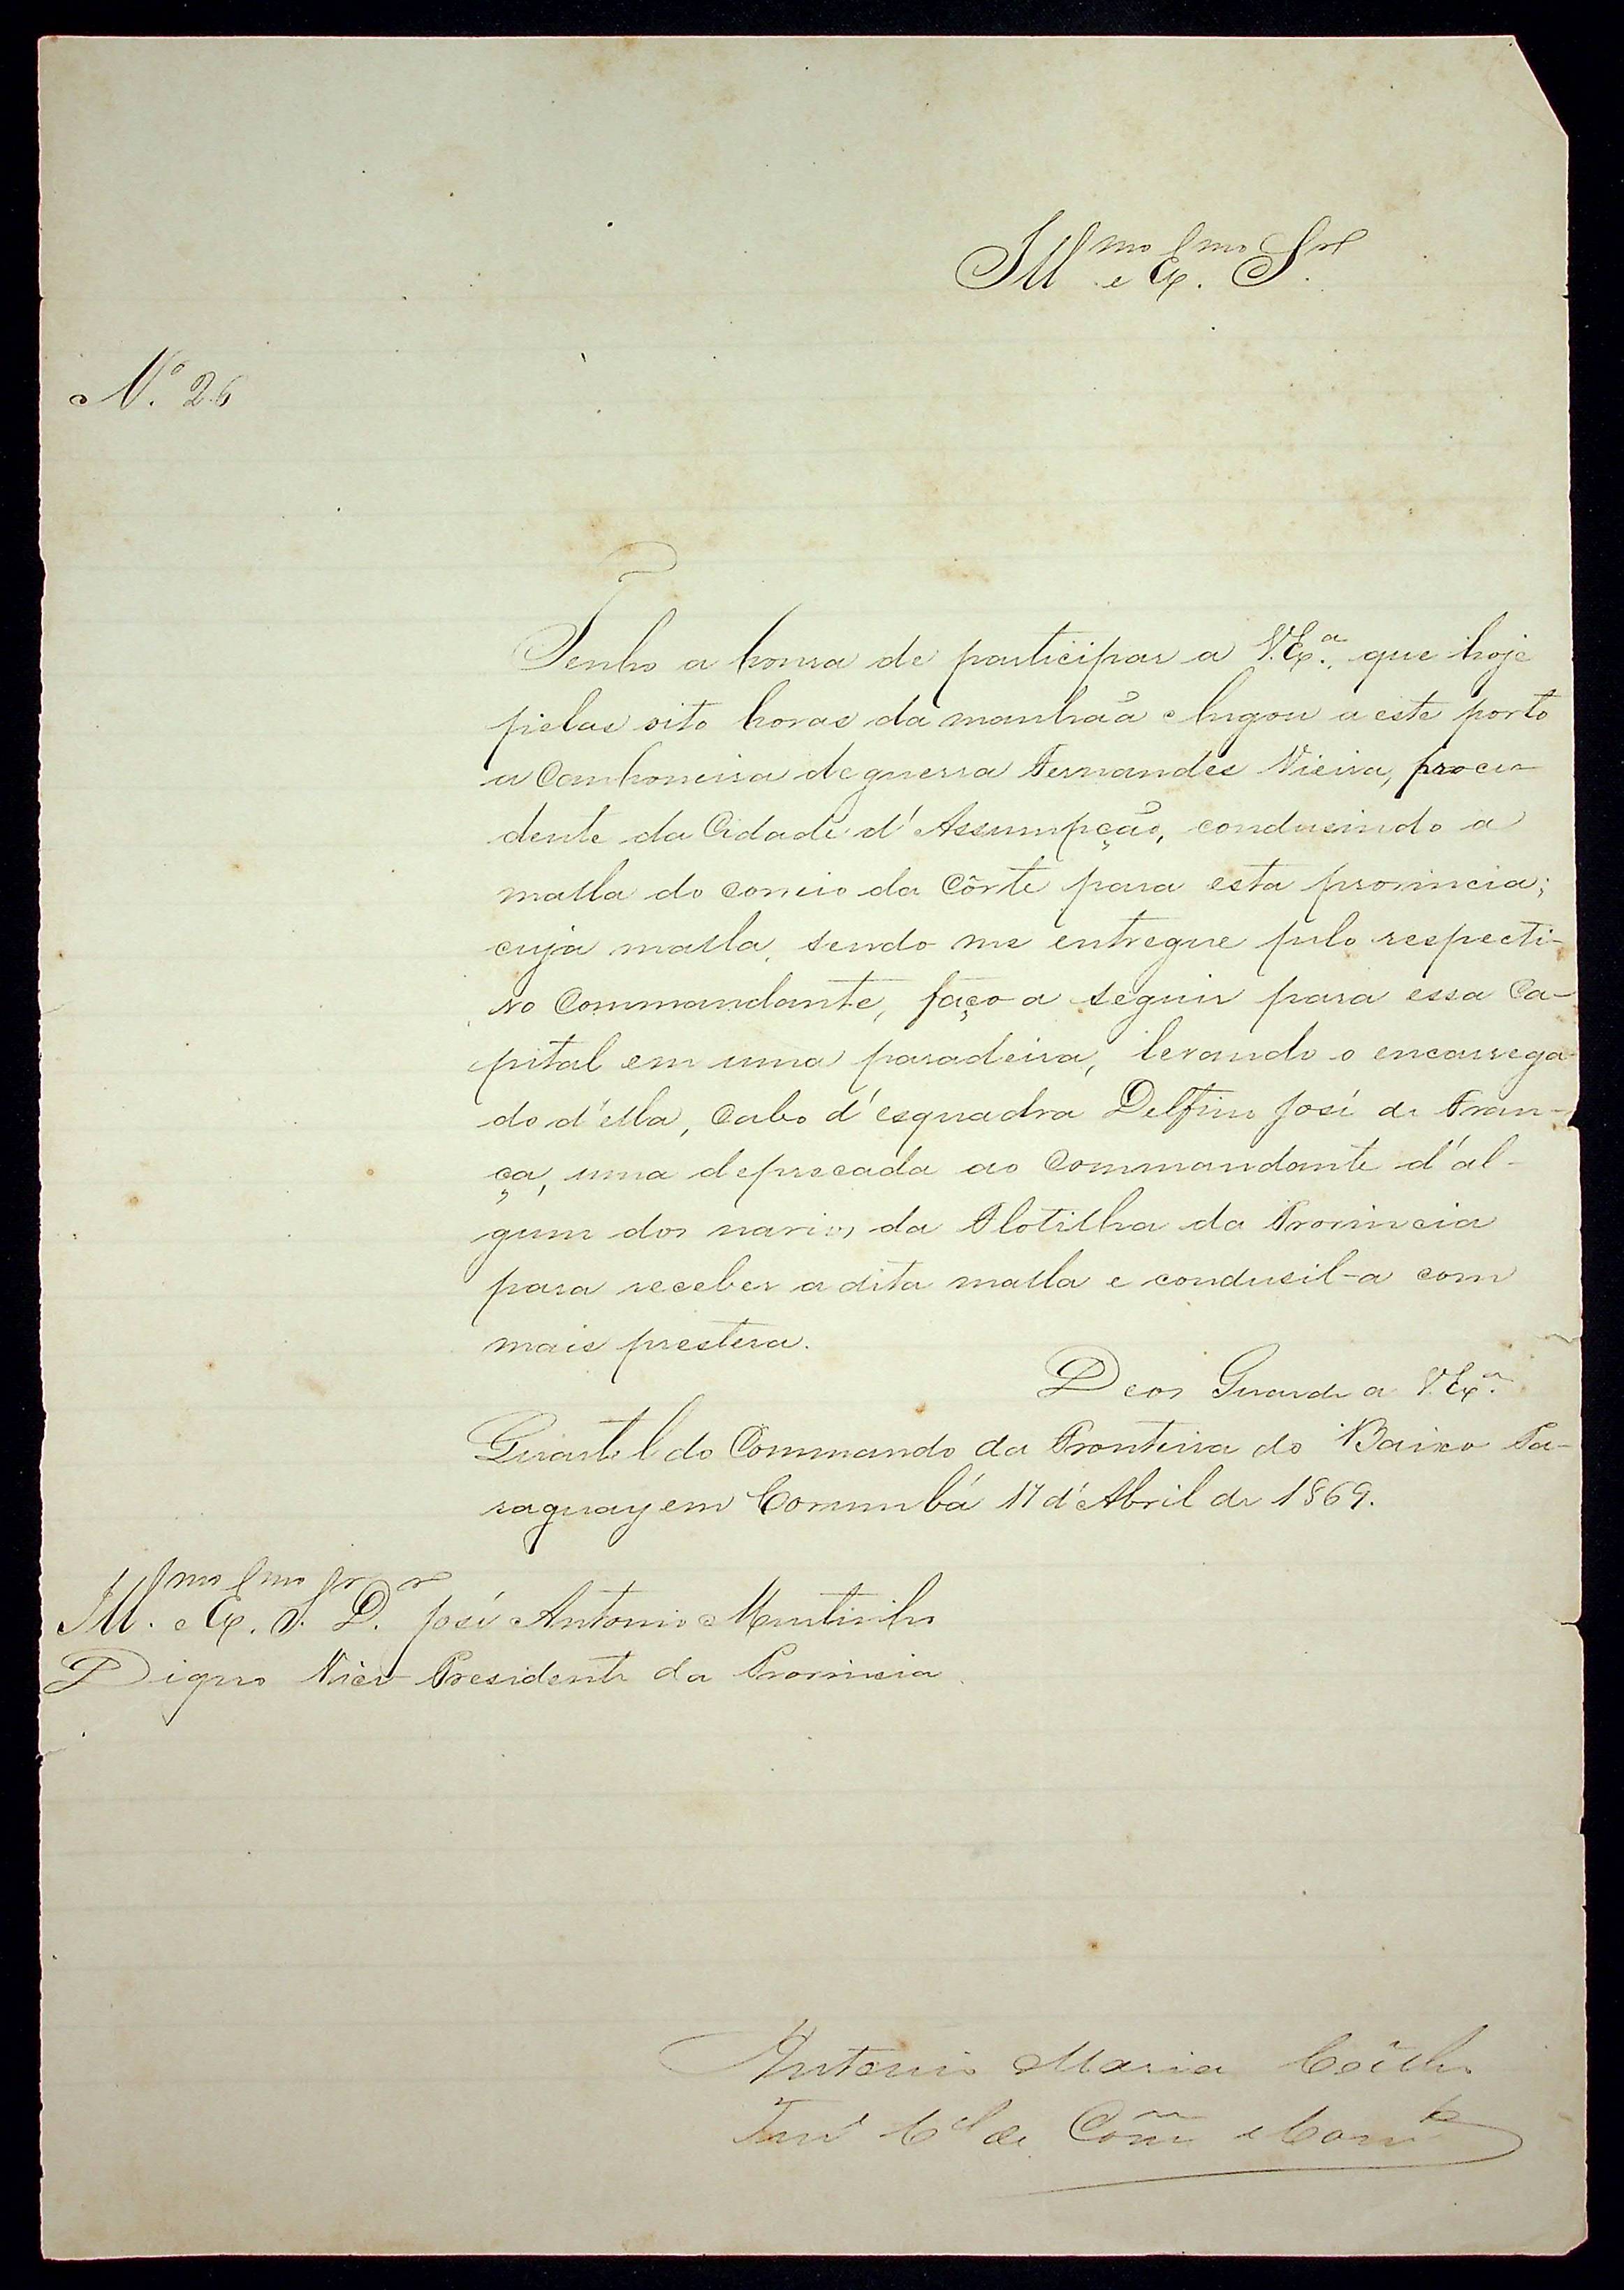 Ill.mo e Ex.mo Snr.
N.º 26
Tenho a honra de participar a V.Ex.ª que hoje
pelas oito horas da manhãa chegou a este porto
a Canhoneira de guerra Fernandes Vieira, proce-
dente da Cidade d'Assumpção, condusindo a
malla do correio da Côrte para esta provincia;
cuja malla, sendo-me entregue pelo respecti-
vo Commandante, faço-a seguir para essa Ca-
pital em uma paradeira, levando o encarrega-
do d'ella, Cabo d'esquadra Delfino José de Fran-
ça, uma deprecada ao Commandante d'al-
gum dos navios da Flotilha da Provincia
para receber a dita malla e condusil-a com
mais prestesa.
Deos Guarde a V.Ex.ª
Quartel do Commando da Fronteira do Baixo Pa-
raguay em Corumbá 17 d'Abril de 1869.
Ill.mo e Ex.mo Sr. Dr. José Antonio Murtinho
Digno Vice-Presidente da Provincia
Antonio Maria Coêlho
Ten.e C.el de Com.m e Com.te